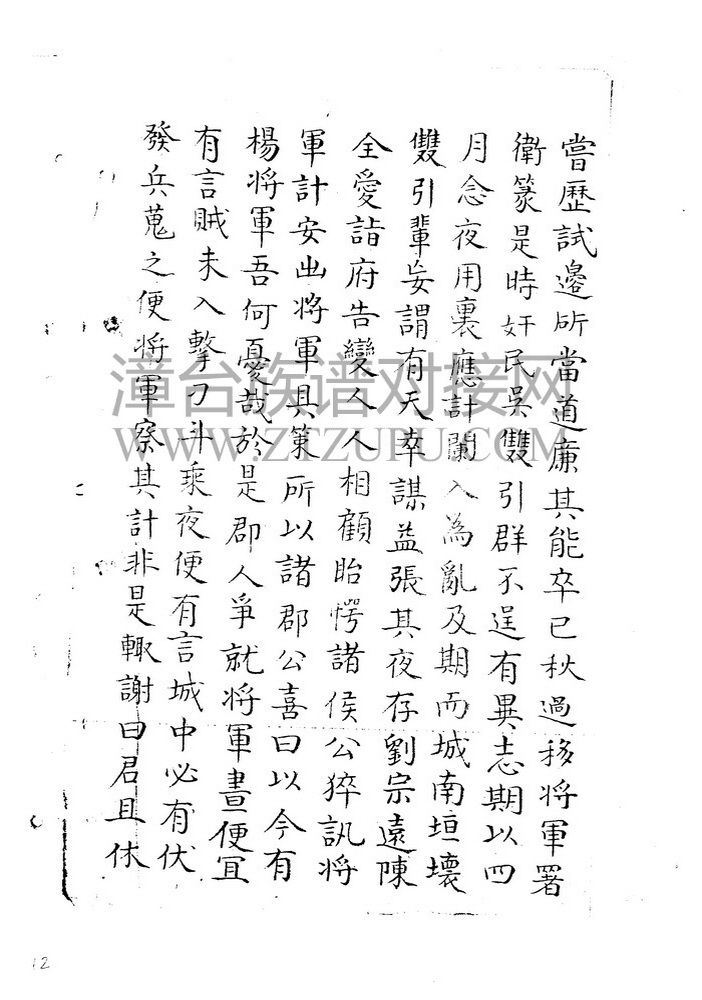 嘗歷試邊所當道廉其能卒已秋過移將軍署
衛篆是時奸民吳雙引群不逞有異志期以四
月念夜用裏應計闌入為亂及期而城南垣壞
雙引輩妄謂有天幸謀益張其夜存劉宗遠陳
全愛詣府告變人人相顧眙愕諸侯公猝訊將
軍計安出將軍具策所以諸郡公喜曰以今有
楊將軍吾何憂哉於是郡人爭就將軍畫便宜
有言賊未入擊刁斗乘夜便有言城中必有伏
發兵蒐之便將軍察其計非是輒謝曰君且休
漳台族谱对接网
WWW.ZTZUPU.COM
12